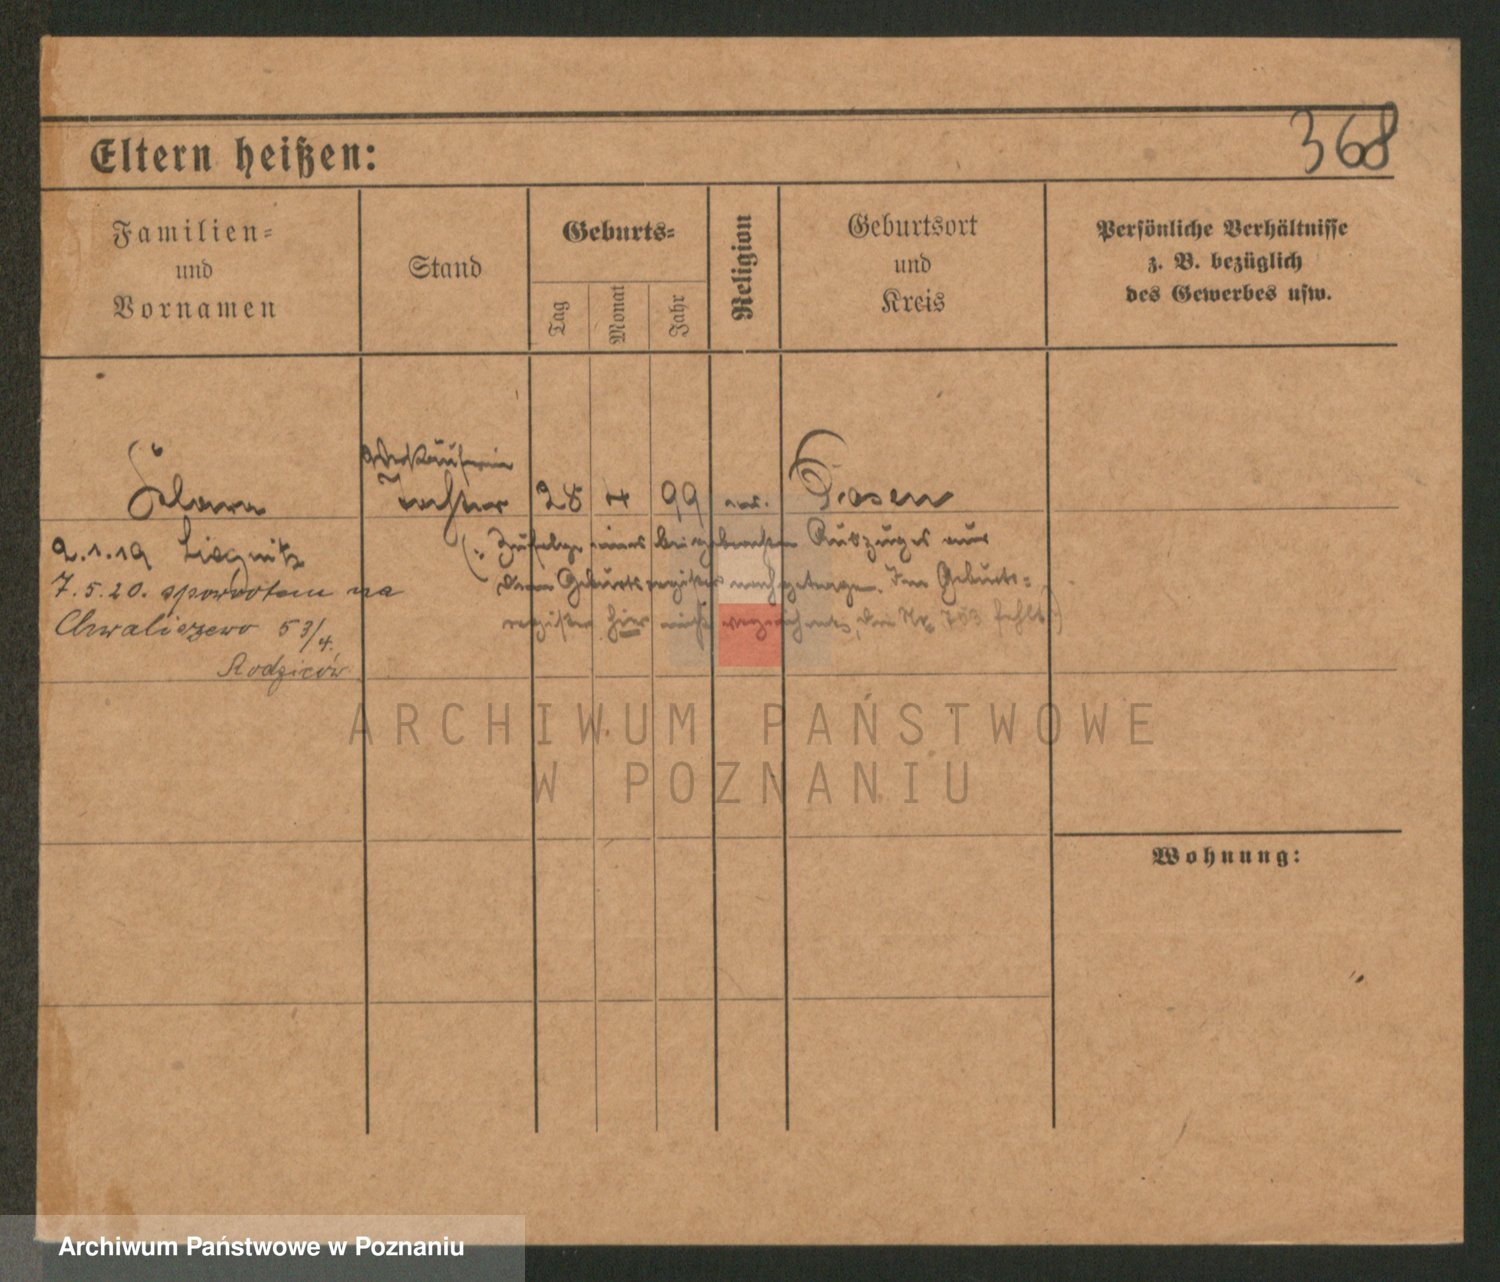 368
Eltern heißen:
Familien=
und
Vornamen
Stand
Geburts=
Tag
Monat
Jahr
Religion
Geburtsort
und
Kreis
Persönliche Verhältnisse
z. B. bezüglich
des Gewerbes usw.
Verkäuferin
Klara Tochter 28 4 99 Posen
2.1.19 Liegnitz
7.5.20. spowrotem na
Chwaliszewo 53/4.
Rodziców
(: Zufolge eines beigebrachten Auszuges aus
dem Geburtsregister nachgetragen. Im Geburts=
register hier nicht verzeichnet, die Nr. 753 fehlt :)
ARCHIWUM PAŃSTWOWE
W POZNANIU
Wohnung:
Archiwum Państwowe w Poznaniu